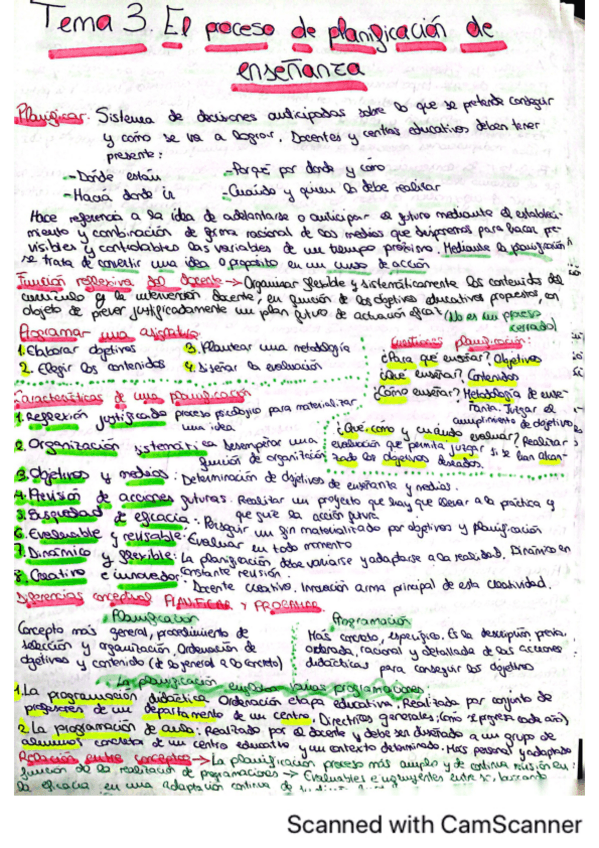 Tema 3. El proceso de planificación de
enseñanza
Planificar: Sistema de decisiones anticipadas sobre lo que se pretende conseguir
y cómo se va a lograr. Docentes y centros educativos deben tener
presente:
- Dónde están
- Por qué por donde y cómo
- Hacia donde ir
- Cuándo y quien lo debe realizar
Hace referencia a la idea de adelantarse o anticipar el futuro mediante el estableci-
miento y combinación de forma racional de los medios que disponemos para hacer pre-
visibles y controlables las variables de un tiempo próximo. Mediante la planificación
se trata de convertir una idea o propósito en un curso de acción
Función reflexiva del docente → Organizar flexible y sistemáticamente los contenidos del
curriculo y la intervención docente, en función de los objetivos educativos propuestos, en
objeto de prever justificadamente un plan futuro de actuación eficaz (No es un proceso
cerrado)
Programar una asignatura
1. Elaborar objetivos
3. Plantear una metodología
2. Elegir los contenidos
4. Diseñar la evaluación
Cuestiones planificación:
¿Para qué enseñar? Objetivos
¿Qué enseñar? Contenidos
¿Cómo enseñar? Metodología de ense-
ñanza. Juzgar el
cumplimiento de objetivo
¿Qué, cómo y cuándo evaluar? Realizar
evaluación que permita juzgar si se han alcan-
zado los objetivos deseados.
Características de una planificación
1. Reflexión justificada proceso psicológico para materializar
una idea
2. Organización sistemática desempeñar una
función de organización
3. Objetivos y medios: Determinación de objetivos de enseñanza y medios.
4. Previsión de acciones futuras: Realizar un proyecto que hay que llevar a la práctica y
que guíe la acción futura.
5. Búsqueda de eficacia: Perseguir un fin materializado por objetivos y planificación
6. Evaluable y revisable: Evaluar en todo momento
7. Dinámico y flexible: La planificación, debe variarse y adaptarse a la realidad. Dinámico en
constante revisión.
8. Creativo e innovador: Docente creativo. Innovación arma principal de esta creatividad.
Diferencias conceptual PLANIFICAR Y PROGRAMAR
Planificación
Concepto más general, procedimiento de
selección y organización. Ordenación de
objetivos y contenido (de lo general a lo concreto)
Programación
Más concreto, específico. Es la descripción previa,
ordenada, racional y detallada de las acciones
didácticas para conseguir los objetivos
La planificación engloba varias programaciones
1. La programación didáctica Ordenación etapa educativa. Realizada por conjunto de
profesores de un departamento de un centro. Directrices generales
2. La programación de aula: Realizado por el docente y debe ser diseñado a un grupo de
alumnos concreto de un centro educativo y un contexto determinado. Más personal y adaptado
Relación entre conceptos → La planificación proceso más amplio y de continua revisión en
función de la realización de programaciones → Evaluables e entre sí, buscando
la eficacia en una adaptación continua de
Scanned with CamScanner